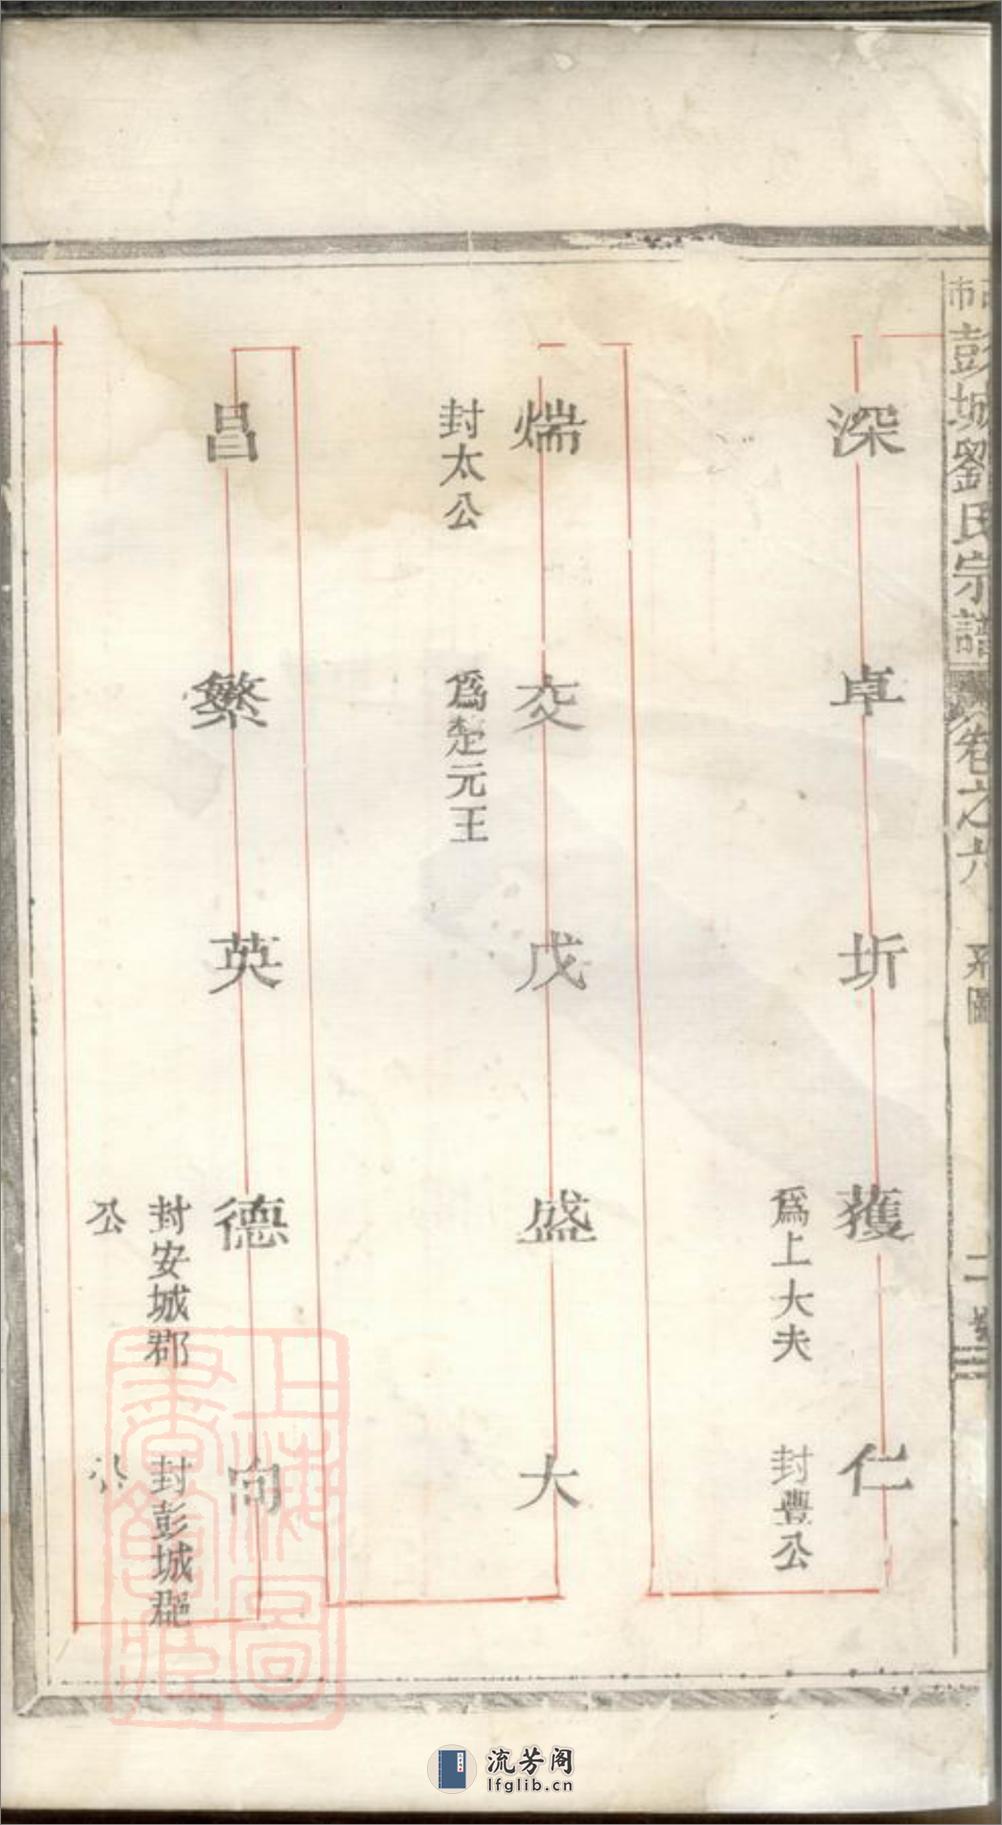 市彭城劉氏宗譜
卷之六
系圖
二
深
卓
圻
獲
爲上大夫
仁
封豐公
煓
封太公
交
爲楚元王
戊
盛
大
昌
繁
英
德
封安城郡
公
向
封彭城郡
公
上海圖書館藏
流芳阁
lfglib.cn